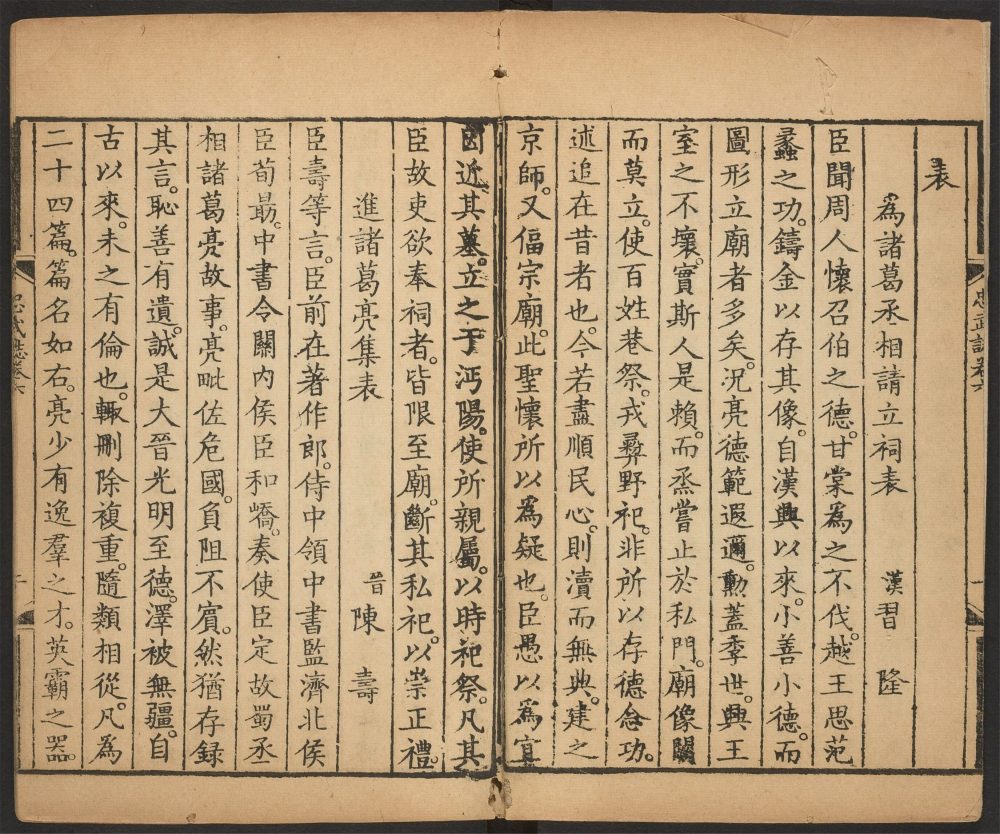 表
爲諸葛丞相請立祠表　漢習　隆
臣聞周人懷召伯之德。甘棠爲之不伐。越王思范
蠡之功。鑄金以存其像。自漢興以來。小善小德。而
圖形立廟者多矣。況亮德範遐邇。勳蓋季世。興王
室之不壞。實斯人是賴。而烝嘗止於私門。廟像闕
而莫立。使百姓巷祭。戎彝野祀。非所以存德念功。
述追在昔者也。今若盡順民心。則瀆而無典。建之
京師。又偪宗廟。此聖懷所以爲疑也。臣愚以爲宜
因近其墓。立之于沔陽。使所親屬。以時祀祭。凡其
臣故吏欲奉祠者。皆限至廟。斷其私祀。以崇正禮。
進諸葛亮集表　晉陳　壽
臣壽等言。臣前在著作郎。侍中領中書監濟北侯
臣荀勗。中書令關內侯臣和嶠。奏使臣定故蜀丞
相諸葛亮故事。亮毗佐危國。負阻不賓。然猶存録
其言。恥善有遺。誠是大晉光明至德。澤被無疆。自
古以來。未之有倫也。輒刪除複重。隨類相從。凡爲
二十四篇。篇名如右。亮少有逸羣之才。英霸之器。
忠武誌卷六